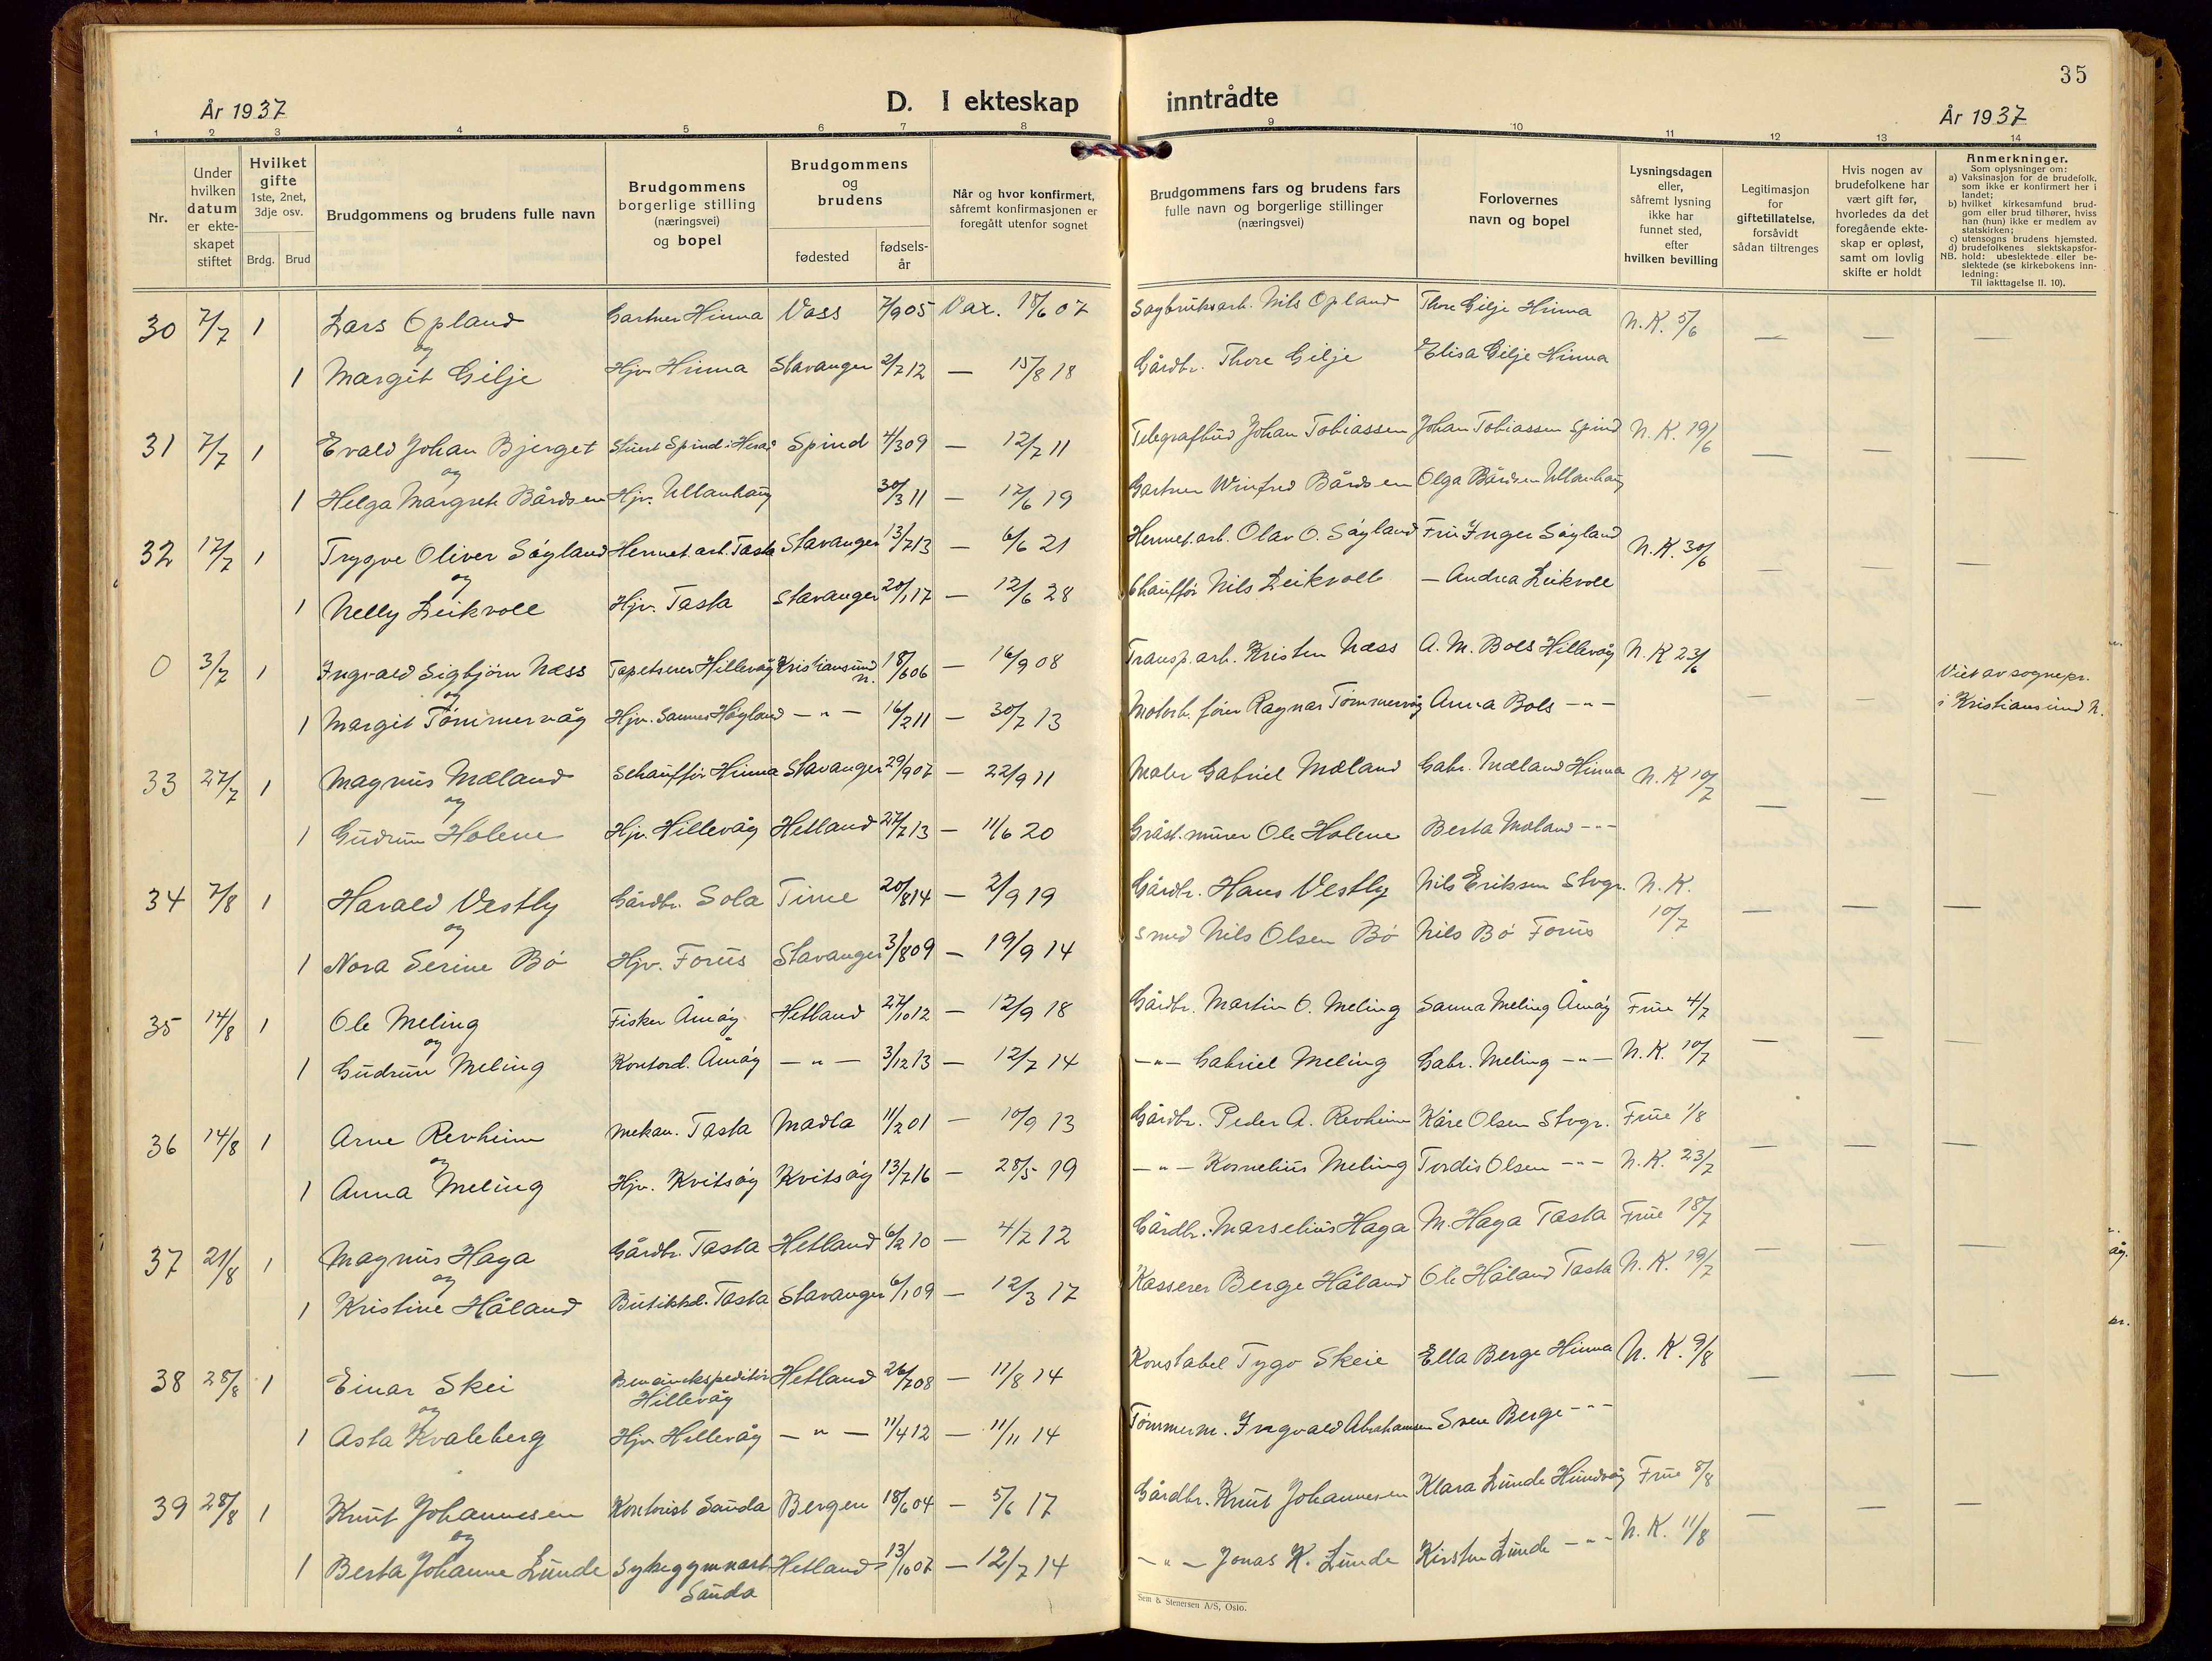 35
År 1937
D. I ekteskap inntrådte
År 1937
1 2 3 4 5 6 7 8 9 10 11 12 13 14
Nr.
Under hvilken datum er ekteskapet stiftet
Hvilket gifte 1ste, 2net, 3dje osv.
Brdg. Brud
Brudgommens og brudens fulle navn
Brudgommens borgerlige stilling (næringsvei) og bopel
Brudgommens og brudens
fødested
fødsels-år
Når og hvor konfirmert, såfremt konfirmasjonen er foregått utenfor sognet
Brudgommens fars og brudens fars fulle navn og borgerlige stillinger (næringsvei)
Forlovernes navn og bopel
Lysningsdagen eller, såfremt lysning ikke har funnet sted, efter hvilken bevilling
Legitimasjon for giftetillatelse, forsåvidt sådan tiltrenges
Hvis nogen av brudefolkene har vært gift før, hvorledes da det foregående ekteskap er opløst, samt om lovlig skifte er holdt
Anmerkninger.
Som oplysninger om:
a) Vaksinasjon for de brudefolk, som ikke er konfirmert her i landet;
b) hvilket kirkesamfund brudgom eller brud tilhører, hviss han (hun) ikke er medlem av statskirken;
c) utensogns brudens hjemsted.
d) brudefolkenes slektskapsforhold: ubeslektede eller beslektede (se kirkebokens innledning:
NB.
Til iakttagelse II. 10).
30 7/7 1 Lars Opland Gartner Hinna Voss 7/9 05 Vax. 18/6 07 Sagbruksarb. Nils Opland Thore Gilje Hinna N. K. 5/6 — — —
og
1 Margit Gilje Hjv. Hinna Stavanger 2/7 12 — 15/8 18 Gårdbr. Thore Gilje Elisa Gilje Hinna
31 7/7 1 Evald Johan Bjerget Stuert Spind i Herad Spind 4/3 09 — 12/7 11 Telegrafbud Johan Tobiassen Johan Tobiassen Spind N. K. 19/6 — — —
og
1 Helga Margrete Bårdsen Hjv. Ullanhaug 30/3 11 — 12/6 19 Gartner Winfred Bårdsen Olga Bårdsen Ullanhaug
32 17/7 1 Trygve Oliver Søyland Hermet. arb. Tasta Stavanger 13/7 13 — 6/6 21 Hermet. arb. Olav O. Søyland Fru Inger Søyland N. K. 30/6 — — —
og
1 Nelly Leikvoll Hjv. Tasta Stavanger 20/1 17 — 12/6 28 Chauffør Nils Leikvoll — Andrea Leikvoll
0 3/7 1 Ingvald Sigbjørn Næss Tapetserer Hillevåg Kristiansund n. 18/6 06 — 16/9 08 Transp. arb. Kristen Næss A. M. Bols Hillevåg N. K 23/6 — — Viet av sognepr.
og
1 Margit Tømmervåg Hjv. Sannes Høgland — " — 16/2 11 — 30/7 13 Motorb. fører Ragnar Tømmervåg Anna Bols — " — i Kristiansund N.
33 27/7 1 Magnus Mæland Schauffør Hinna Stavanger 29/9 07 — 22/9 11 Maler Gabriel Mæland Gabr. Mæland Hinna N. K 10/7 — — —
og
1 Gudrun Holene Hjv. Hillevåg Hetland 27/7 13 — 11/6 20 Gråst. murer Ole Holene Berta Mæland — " —
34 7/8 1 Harald Vestly Gårdbr. Sola Time 20/8 14 — 2/9 19 Gårdbr. Hans Vestly Nils Eriksen Stvgr. N. K. 10/7 — — —
og
1 Nora Serine Bø Hjv. Forus Stavanger 3/8 09 — 19/9 14 Smed Nils Olsen Bø Nils Bø Forus
35 14/8 1 Ole Meling Fisker Åmøy Hetland 27/10 12 — 12/9 18 Gårdbr. Martin O. Meling Sanna Meling Åmøy Frue 4/7 — — —
og
1 Gudrun Meling Kontord. Åmøy — " — 3/12 13 — 12/7 14 — " — Gabriel Meling Gabr. Meling — " — N. K. 10/7
36 14/8 1 Arne Revheim Mekan. Tasta Madla 11/2 01 — 10/9 13 Gårdbr. Peder A. Revheim Kåre Olsen Stvgr. Frue 1/8 — — —
og
1 Anna Meling Hjv. Kvitsøy Kvitsøy 13/7 16 — 28/5 19 — " — Kornelius Meling Tordis Olsen — " — N. K. 23/7
37 21/8 1 Magnus Haga Gårdbr. Tasta Hetland 6/2 10 — 4/7 12 Gårdbr. Marselius Haga M. Haga Tasta Frue 18/7 — — —
og
1 Kristine Håland Butikkd. Tasta Stavanger 6/1 09 — 12/3 17 Kasserer Berge Håland Ole Håland Tasta N. K. 19/7
38 28/8 1 Einar Skei Hillevåg Hetland 26/7 08 — 11/8 14 Konstabel Tygo Skeie Ella Berge Hinna N. K. 9/8 — — —
og
1 Asta Kvaleberg Hjv. Hillevåg — " — 11/4 12 — 11/11 14 Tømmerm. Ingvald Abrahamsen Sven Berge — " —
39 28/8 1 Knut Johannesen Kontorist Sauda Bergen 18/6 04 — 5/6 17 Gårdbr. Knut Johannesen Klara Lunde Hundvåg Frue 8/8 — — —
og
1 Berta Johanne Lunde Sykegymnast Sauda Hetland 13/10 07 — 12/7 14 — " — Jonas K. Lunde Kirsten Lunde — " — N. K. 11/8
Sem & Stenersen A/S, Oslo.